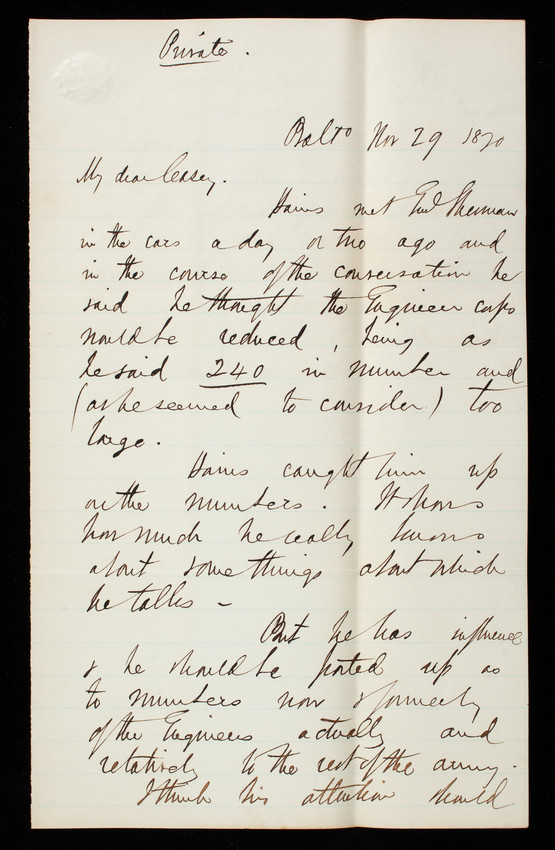 Private.
Balto Nov 29 1870
My dear Casey.
Hains met Genl Sherman
in the cars a day or two ago and
in the course of the conversation he
said he thought the Engineer corps
would be reduced, being as
he said 240 in number and
(as he seemed to consider) too
large.
Hains caught him up
on the numbers. It shows
how much he really knows
about some things about which
he talks -
But he has influence
& he should be posted up as
to numbers now & formerly
of the Engineers actually and
relatively to the rest of the army.
I think his attention should